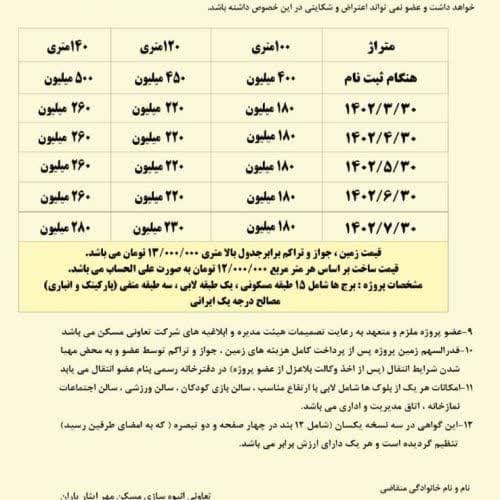 خواهد داشت و عضو نمی تواند اعتراض و شکایتی در این خصوص داشته باشد.
متراژ ۱۰۰متری ۱۲۰متری ۱۴۰متری
هنگام ثبت نام ۴۰۰ میلیون ۴۵۰ میلیون ۵۰۰ میلیون
۱۴۰۲/۳/۳۰ ۱۸۰ میلیون ۲۲۰ میلیون ۲۶۰ میلیون
۱۴۰۲/۴/۳۰ ۱۸۰ میلیون ۲۲۰ میلیون ۲۶۰ میلیون
۱۴۰۲/۵/۳۰ ۱۸۰ میلیون ۲۲۰ میلیون ۲۶۰ میلیون
۱۴۰۲/۶/۳۰ ۱۸۰ میلیون ۲۲۰ میلیون ۲۶۰ میلیون
۱۴۰۲/۷/۳۰ ۱۸۰ میلیون ۲۳۰ میلیون ۲۸۰ میلیون
قیمت زمین ، جواز و تراکم برابرجدول بالا متری ۱۳/۰۰۰/۰۰۰ تومان می باشد.
قیمت ساخت بر اساس هر متر مربع ۱۲/۰۰۰/۰۰۰ تومان به صورت علی الحساب می باشد.
مشخصات پروژه : برج ها شامل ۱۵ طبقه مسکونی ، یک طبقه لابی ، سه طبقه منفی (پارکینگ و انباری)
مصالح درجه یک ایرانی
۹-عضو پروژه ملزم و متعهد به رعایت تصمیمات هیئت مدیره و ابلاغیه های شرکت تعاونی مسکن می باشد
۱۰-قدرالسهم زمین پروژه پس از پرداخت کامل هزینه های زمین ، جواز و تراکم توسط عضو و به محض مهیا
شدن شرایط انتقال (پس از اخذ وکالت بلاعزل از عضو پروژه) در دفترخانه رسمی بنام عضو انتقال می یابد
۱۱-امکانات هر یک از بلوک ها شامل لابی با ارتفاع مناسب ، سالن بازی کودکان ، سالن ورزشی ، سالن اجتماعات
نمازخانه ، اتاق مدیریت و اداری می باشد.
۱۲-این گواهی در سه نسخه یکسان (شامل ۱۲ بند در چهار صفحه و دو تبصره ( که به امضای طرفین رسید)
تنظیم گردیده است و هر یک دارای ارزش برابر می باشد.
نام و نام خانوادگی متقاضی
تعاونی انبوه سازی مسکن مهر ایثار یاران